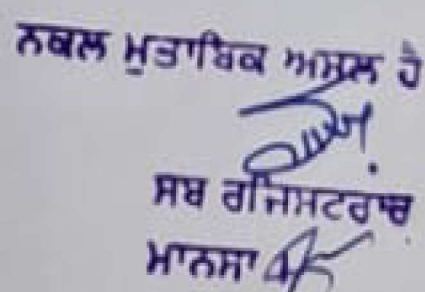 ਨਕਲ ਮੁਤਾਬਿਕ ਅਸਲ ਹੈ
ਸਬ ਰਜਿਸਟਰਾਰ
ਮਾਨਸਾ